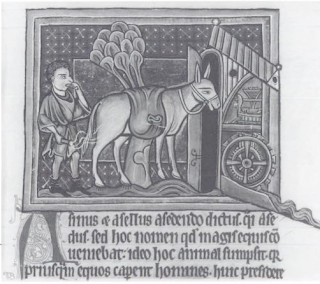 Asinus & asellus asedendo dictus. q̅i ase
dus. sed hoc nomen qd̅ magis equis co̅
ueniebat: ideo hoc animal sumpsit. q̅
priusq̅m equos caperent homines. huic presidere